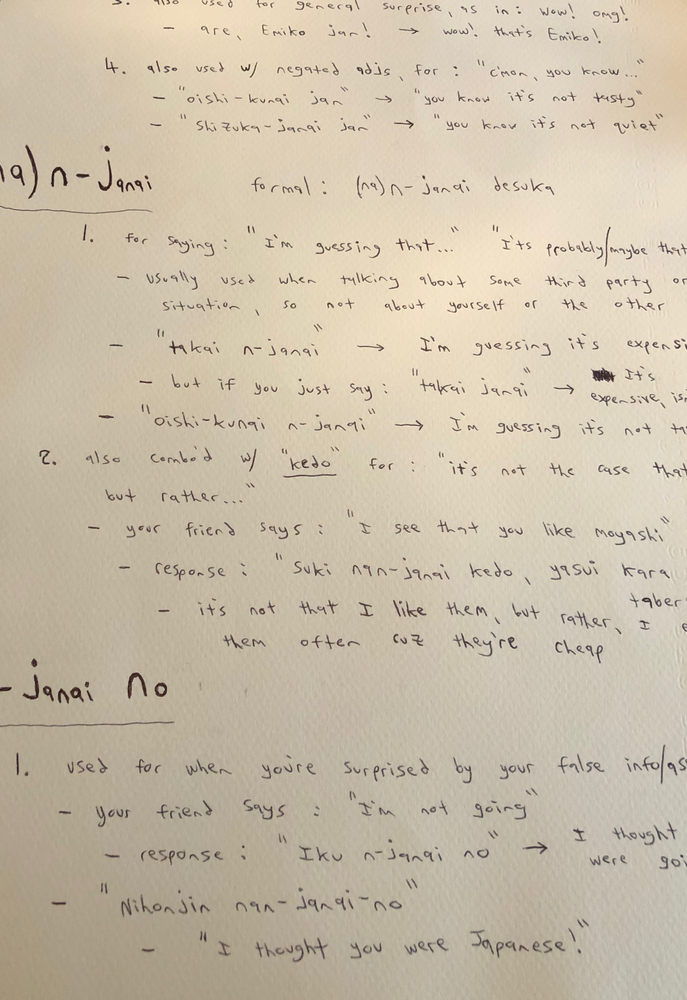 3. also used for general surprise, as in : wow! omg!
- are, Emiko jan! → wow! that's Emiko!
4. also used w/ negated adjs, for : "c'mon, you know..."
- "oishi-kunai jan" → "you know it's not tasty"
- "shizuka-janai jan" → "you know it's not quiet"
na) n-janai formal : (na) n-janai desuka
1. for saying : "I'm guessing that..." "I'ts probably/maybe that
- usually used when talking about some third party or
situation, so not about yourself or the other
- "takai n-janai" → I'm guessing it's expensi
- but if you just say : "takai janai" → It's
expensive, isn
- "oishi-kunai n-janai" → I'm guessing it's not ta
2. also combo'd w/ "kedo" for : "it's not the case that
but rather..."
- your friend says : "I see that you like moyashi"
- response : "Suki nan-janai kedo, yasui kara
taber
- it's not that I like them, but rather, I e
them often cuz they're cheap
- janai no
1. used for when you're surprised by your false info/as
- your friend says : "I'm not going"
- response : "Iku n-janai no" → I thought
were goi
- "Nihonjin nan-janai-no"
- "I thought you were Japanese!"